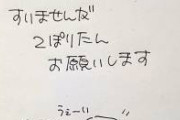 すいませんが
2ぽりたん
お願いします
うぇーい